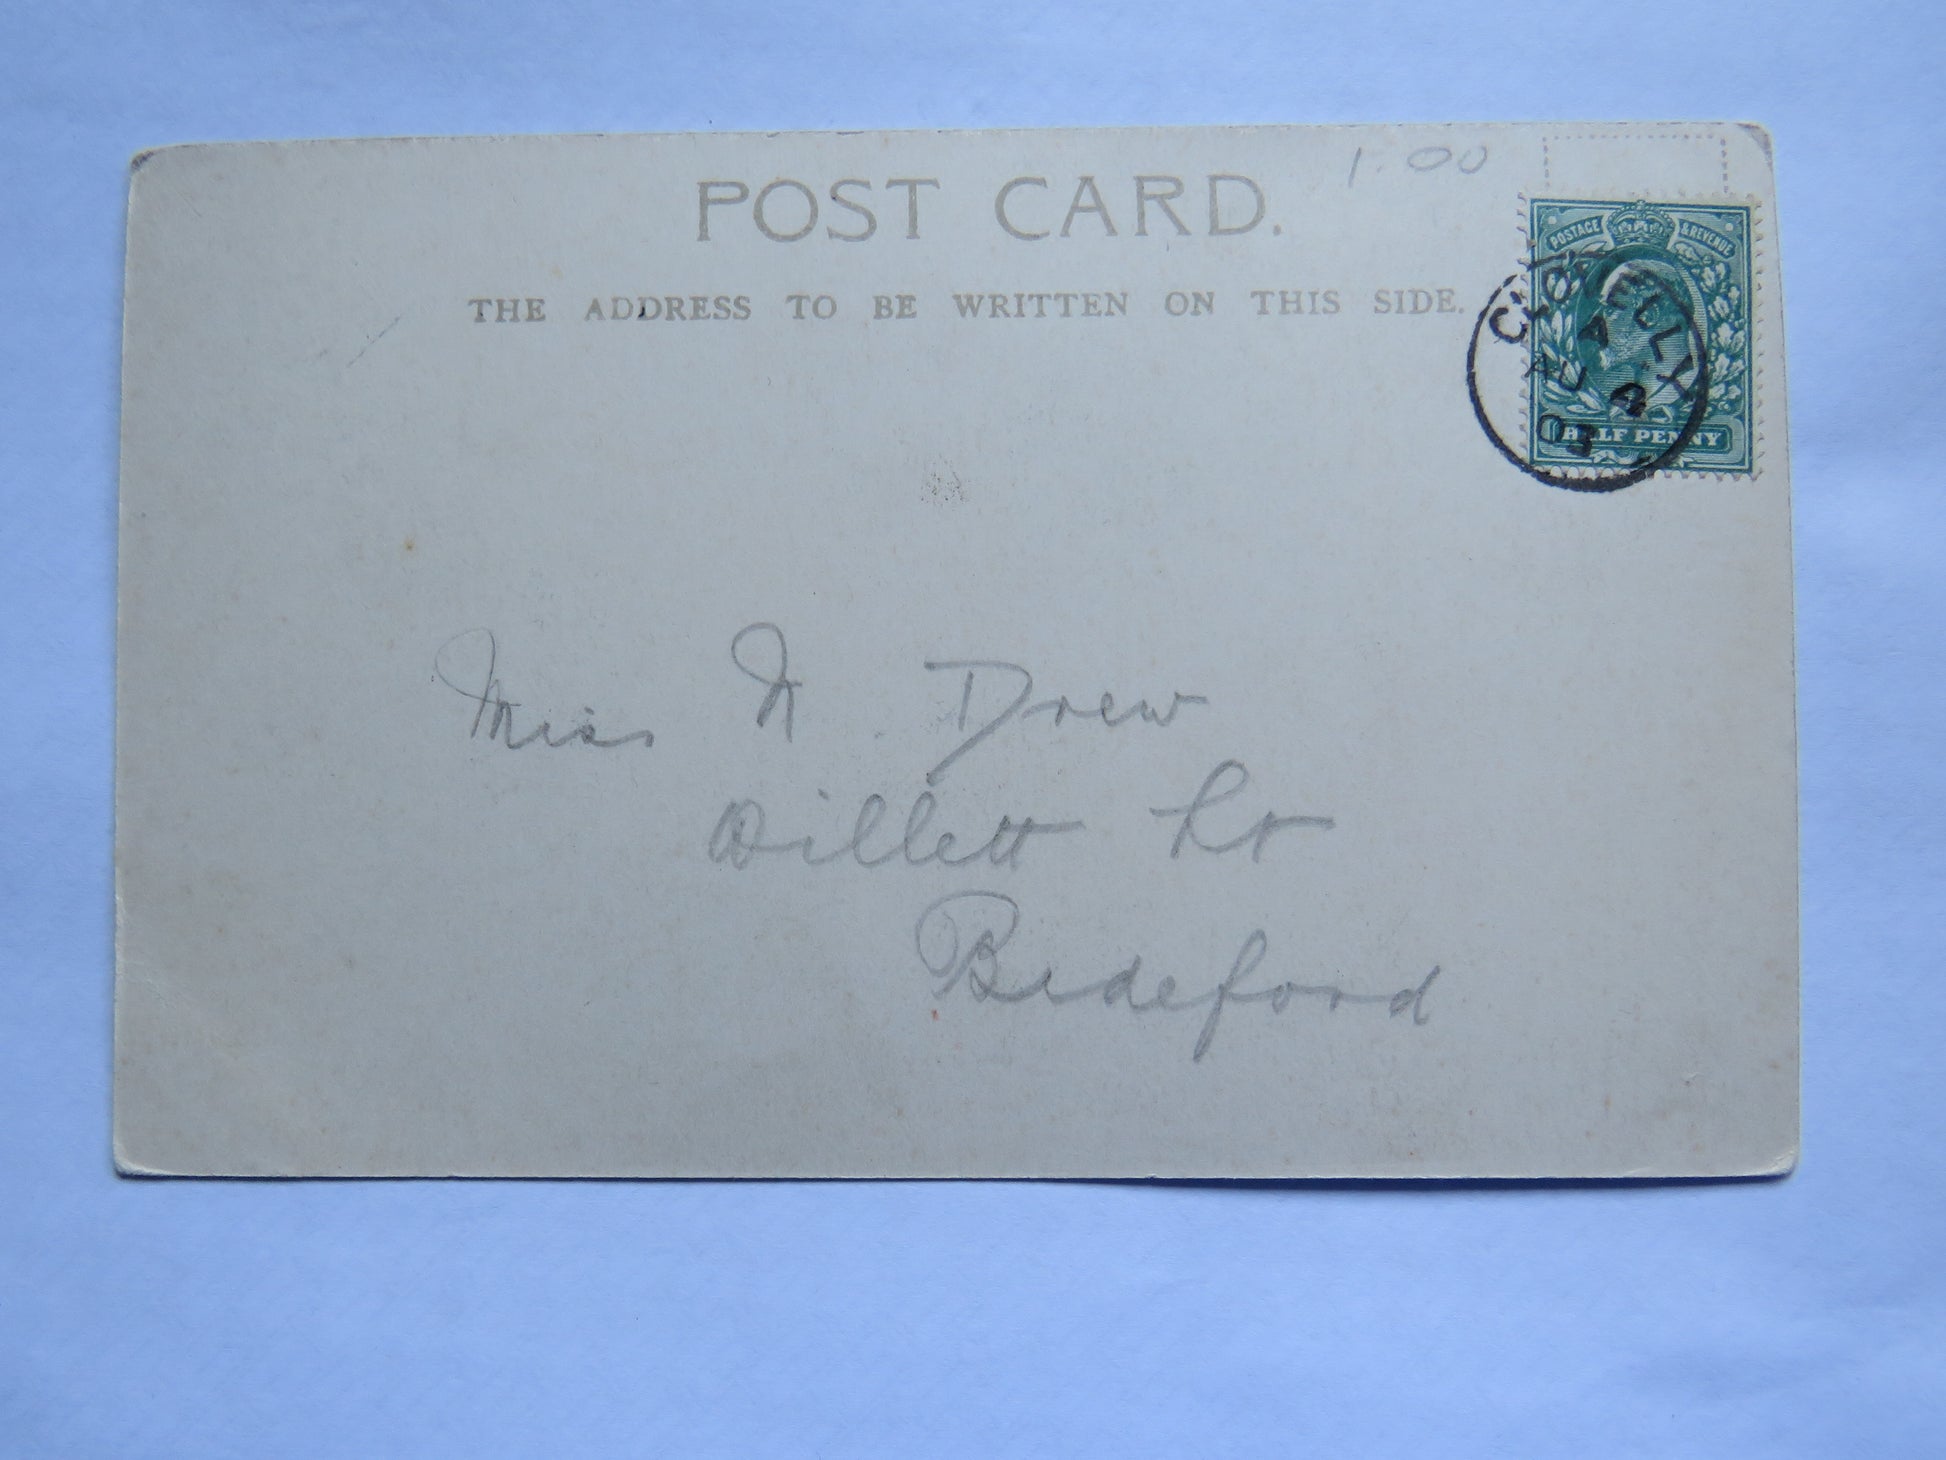 1.00
POST CARD.
THE ADDRESS TO BE WRITTEN ON THIS SIDE.
POSTAGE & REVENUE
CLOVELLY
A
AU 4
03
HALF PENNY
Miss N. Drew
Willett St
Bideford